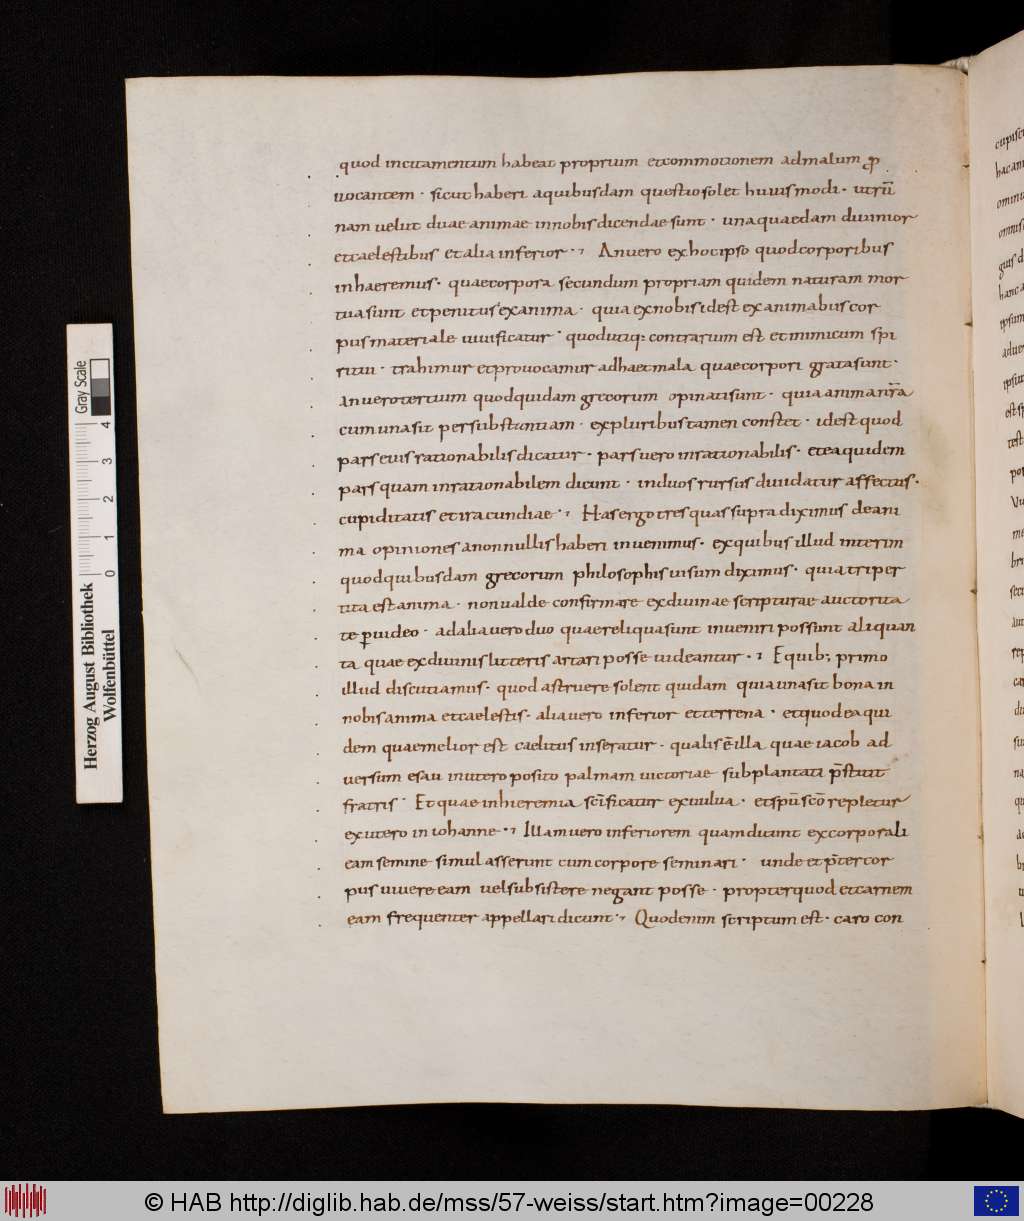 quod incitamentum habeat proprium et commotionem ad malum ꝓ
uocantem · sicut haberi a quibusdam questio solet huius modi · utrū
nam uelut duae animae in nobis dicendae sunt · una quaedam diuinior
et caelestibus et alia inferior · An uero ex hoc ipso quod corporibus
inhaeremus · quae corpora secundum propriam quidem naturam mor
tua sunt et penitus exanima · quia ex nobis id est ex animabus cor
pus materiale uiuificatur · quod utiq: contrarium est et inimicum spi
ritui · trahimur et prouocamur ad haec mala quae corpori grata sunt ·
an uero tertium quod quidam grecorum opinati sunt · quia anima nr̄a
cum una sit per substantiam · ex pluribus tamen constet · id est quod
pars eius rationabilis dicatur · pars uero inrationabilis · et ea quidem
pars quam inrationabilem dicunt · in duos rursus diuidatur affectus ·
cupiditatis et iracundiae · Has ergo tres quas supra diximus de ani
ma opiniones a nonnullis haberi inuenimus · ex quibus illud interim
quod quibusdam grecorum philosophis uisum diximus · quia triper
tita est anima · non ualde confirmare ex diuinae scripturae auctorita
te ꝑuideo · ad alia uero duo quae reliqua sunt inueniri possunt aliquan
ta quae ex diuinis litteris artari posse uideantur · E quib; primo
illud discutiamus · quod astruere solent quidam quia una sit bona in
nobis anima et caelestis · alia uero inferior et terrena · et quod ea qui
dem quae melior est caelitus inseratur · qualis ē illa quae iacob ad
uersum esau in utero posito palmam uictoriae subplantati p̄stitit
fratris · Et quae in hieremia sc̄ificatur ex uulua · et spū sc̄o repletur
ex utero in iohanne · Illam uero inferiorem quam dicunt ex corporali
eam semine simul asserunt cum corpore seminari · unde et p̄ter cor
pus uiuere eam uel subsistere negant posse · propter quod et carnem
eam frequenter appellari dicunt · Quod enim scriptum est · caro con
Gray Scale
0 1 2 3 4
Herzog August Bibliothek
Wolfenbüttel
© HAB http://diglib.hab.de/mss/57-weiss/start.htm?image=00228